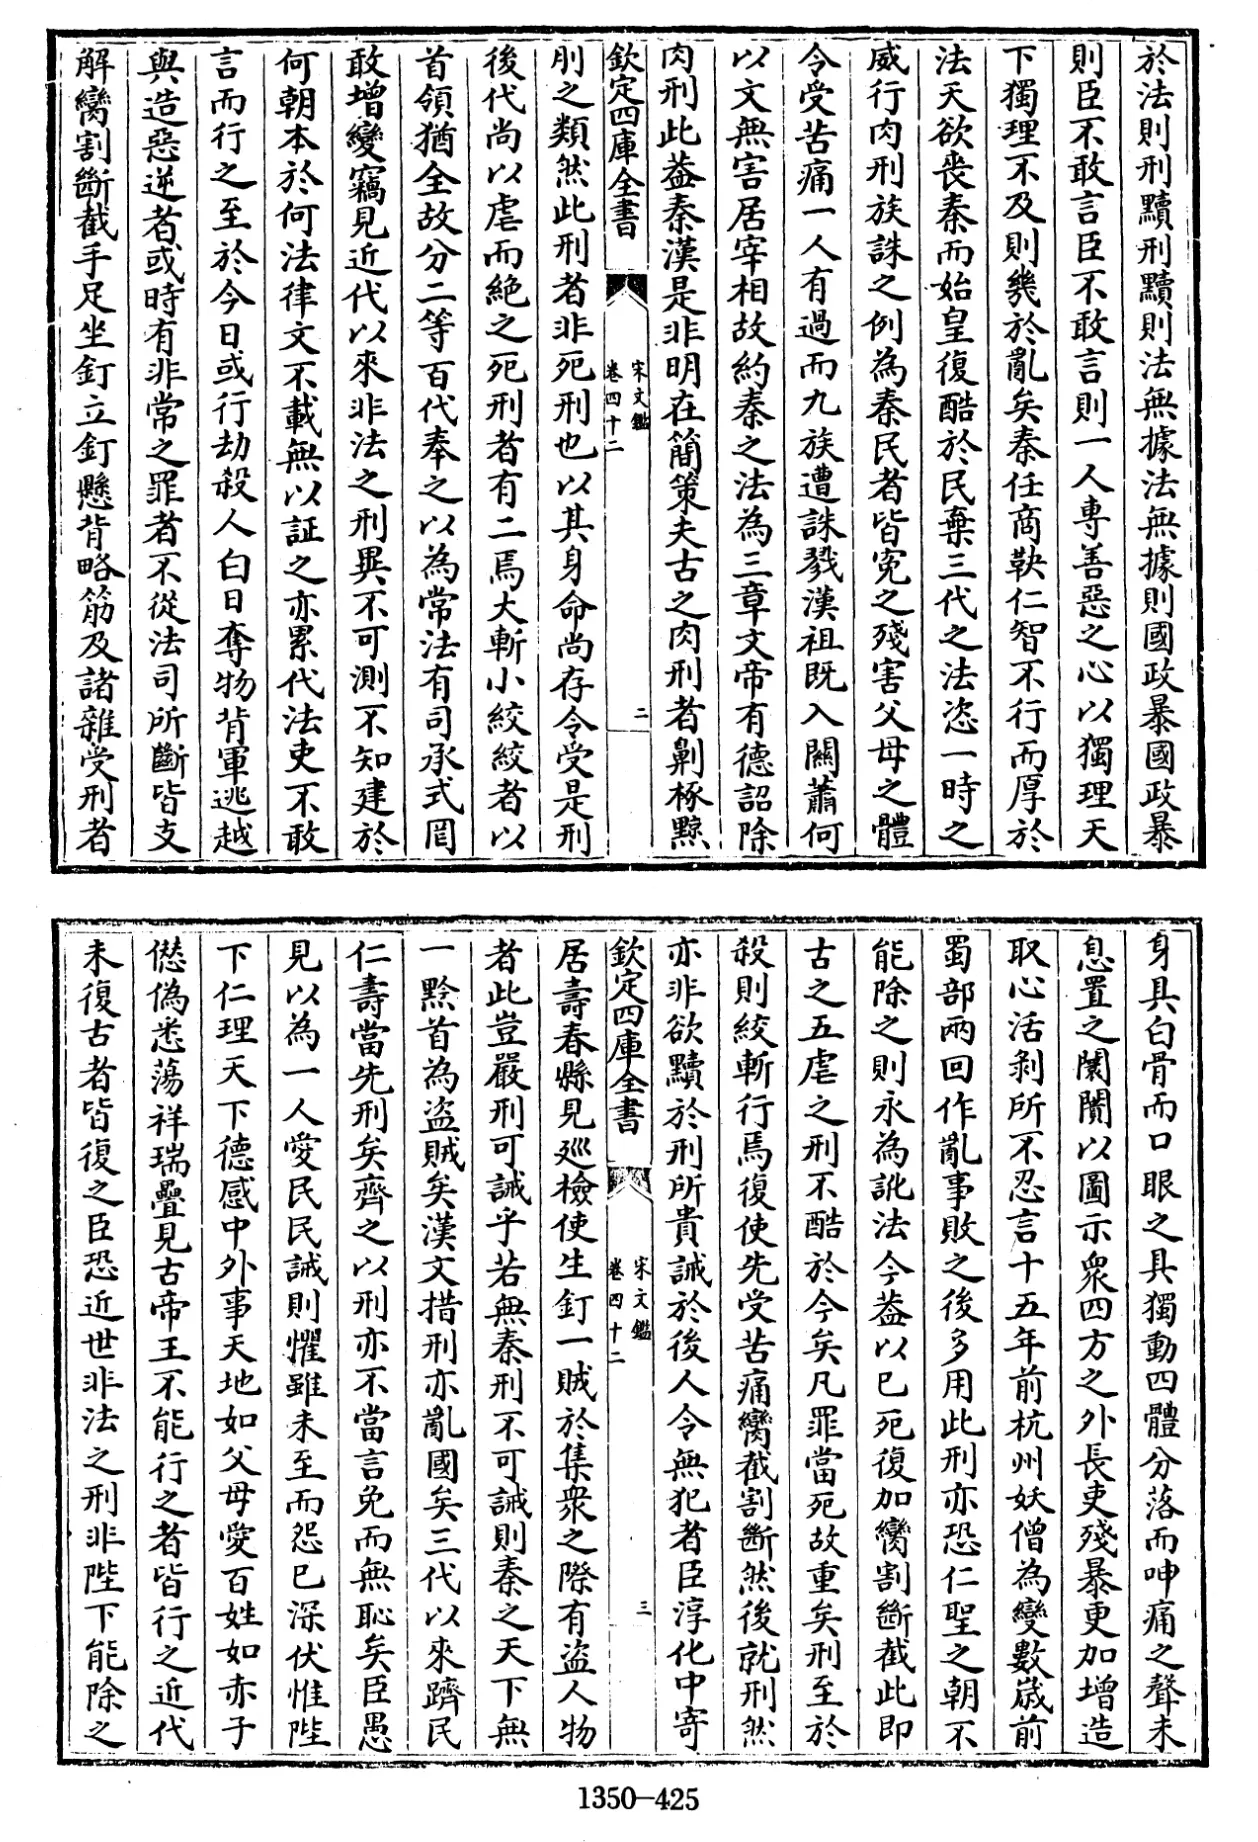 於法則刑黷刑黷則法無據法無據則國政暴國政暴
則臣不敢言臣不敢言則一人專善惡之心以獨理天
下獨理不及則幾於亂矣秦任商鞅仁智不行而厚於
法天欲喪秦而始皇復酷於民棄三代之法恣一時之
威行肉刑族誅之例為秦民者皆寃之殘害父母之體
令受苦痛一人有過而九族遭誅戮漢祖既入關蕭何
以文無害居宰相故約秦之法為三章文帝有德詔除
肉刑此葢秦漢是非明在簡策夫古之肉刑者劓椓黥
欽定四庫全書
宋文鑑
卷四十二
二
刖之類然此刑者非死刑也以其身命尚存令受是刑
後代尚以虐而絶之死刑者有二焉大斬小絞絞者以
首領猶全故分二等百代奉之以為常法有司承式罔
敢增變竊見近代以來非法之刑異不可測不知建於
何朝本於何法律文不載無以証之亦累代法吏不敢
言而行之至於今日或行劫殺人白日奪物背軍逃越
與造惡逆者或時有非常之罪者不從法司所斷皆支
解臠割斷截手足坐釘立釘懸背略筋及諸雜受刑者
身具白骨而口眼之具獨動四體分落而呻痛之聲未
息置之闤闠以圖示衆四方之外長吏殘暴更加増造
取心活剝所不忍言十五年前杭州妖僧為變數歲前
蜀部兩回作亂事敗之後多用此刑亦恐仁聖之朝不
能除之則永為訛法今葢以已死復加臠割斷截此即
古之五虐之刑不酷於今矣凡罪當死故重矣刑至於
殺則絞斬行焉復使先受苦痛臠截割斷然後就刑然
亦非欲黷於刑所貴誡於後人令無犯者臣淳化中寄
欽定四庫全書
宋文鑑
卷四十二
三
居壽春縣見巡檢使生釘一賊於集衆之際有盜人物
者此豈嚴刑可誡乎若無秦刑不可誡則秦之天下無
一黥首為盜賊矣漢文措刑亦亂國矣三代以來躋民
仁壽當先刑矣齊之以刑亦不當言免而無恥矣臣愚
見以為一人愛民民誡則懼雖未至而怨已深伏惟陛
下仁理天下德感中外事天地如父母愛百姓如赤子
僭偽悉蕩祥瑞疊見古帝王不能行之者皆行之近代
未復古者皆復之臣恐近世非法之刑非陛下能除之
1350-425